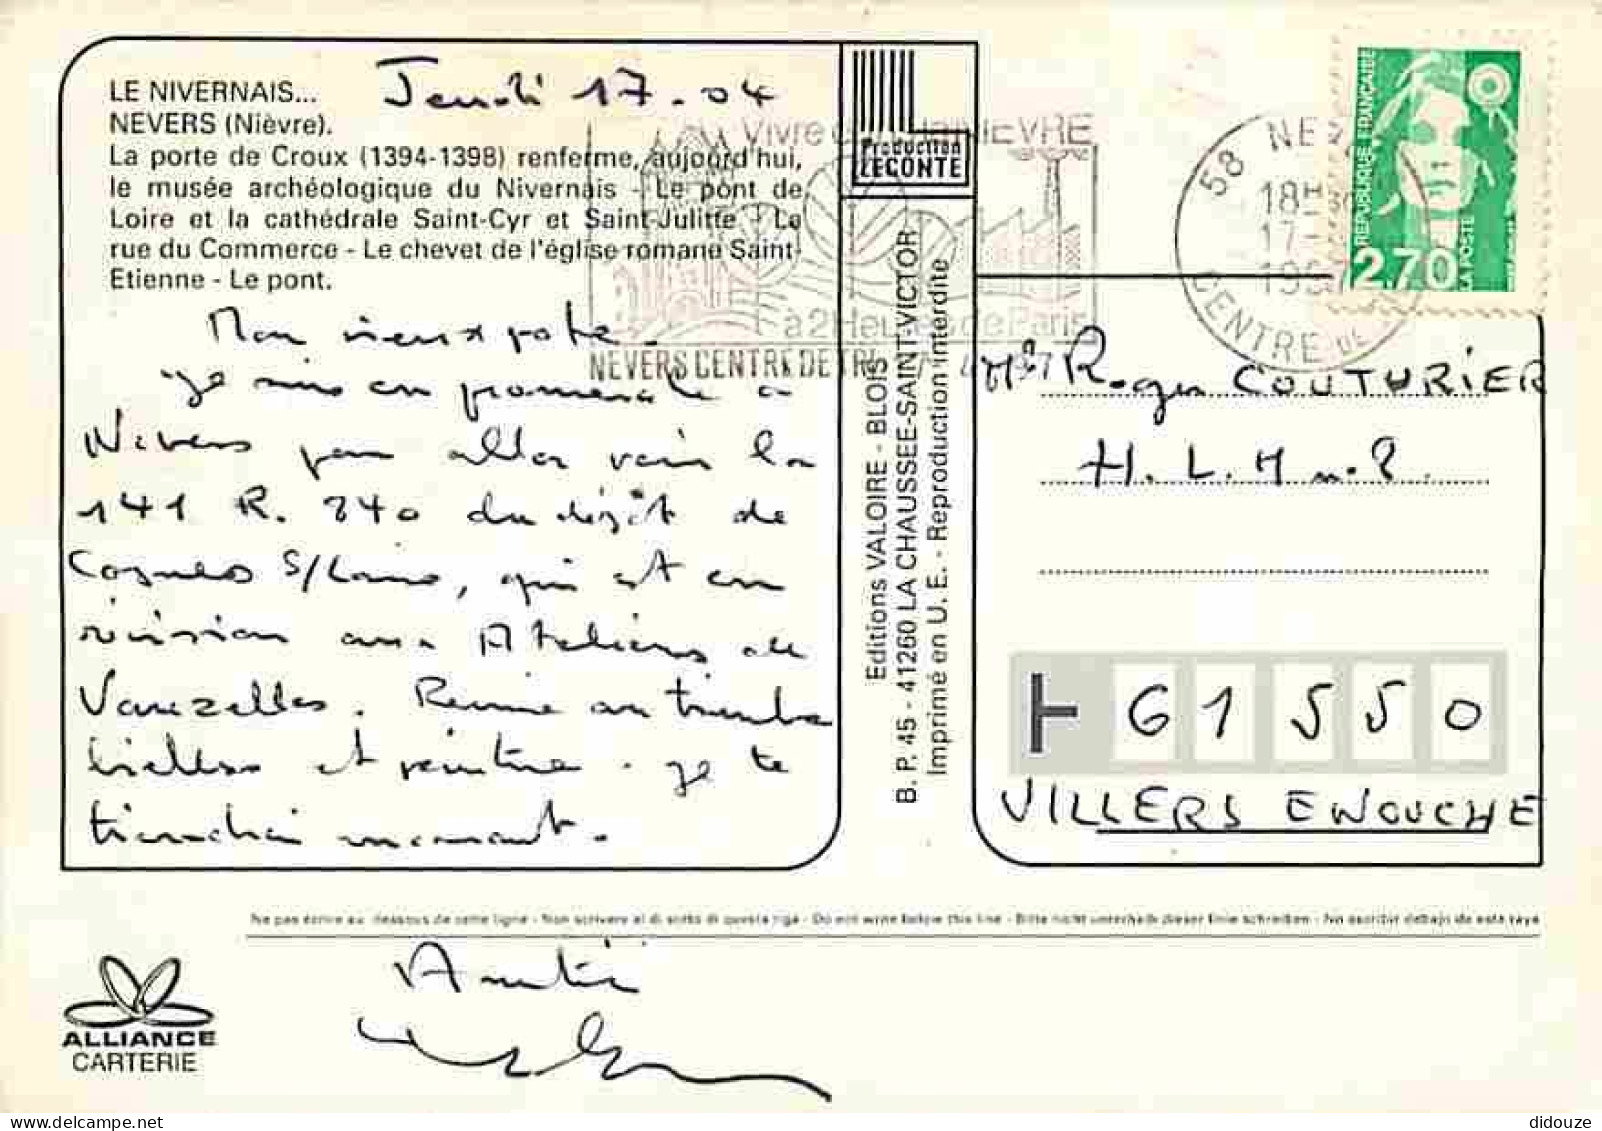 LE NIVERNAIS...
Jeudi 17-04
NEVERS (Nièvre).
La porte de Croux (1394-1398) renferme, aujourd'hui,
le musée archéologique du Nivernais - Le pont de
Loire et la cathédrale Saint-Cyr et Saint-Julitte - La
rue du Commerce - Le chevet de l'église romane Saint-
Etienne - Le pont.
Mon vieux pote.
Je suis en promenade à
Nevers pour aller voir la
141 R. 840 du dépôt de
Cosnes S/Loire, qui est en
révision aux Ateliers de
Varezelles. Remise au timbre
bielles et peinture. Je te
tiendrai au courant.
Amitié
Production
LECONTE
Editions VALOIRE - BLOIS
B. P. 45 - 41260 LA CHAUSSEE-SAINT-VICTOR
Imprimé en U. E. - Reproduction interdite
Vivre en NIEVRE
à 2 Heures de Paris
NEVERS CENTRE DE TRI
58 NE
18H
17
CENTRE DE
REPUBLIQUE FRANÇAISE
2,70
LA POSTE
Mr Roger COUTURIER
H.L.M n°8.
61550
VILLERS ENOUCHE
Ne pas écrire au-dessous de cette ligne - Non scrivere al di sotto di questa riga - Do not write below this line - Bitte nicht unterhalb dieser linie schreiben - No escribir debajo de esta raya
ALLIANCE
CARTERIE
didouze